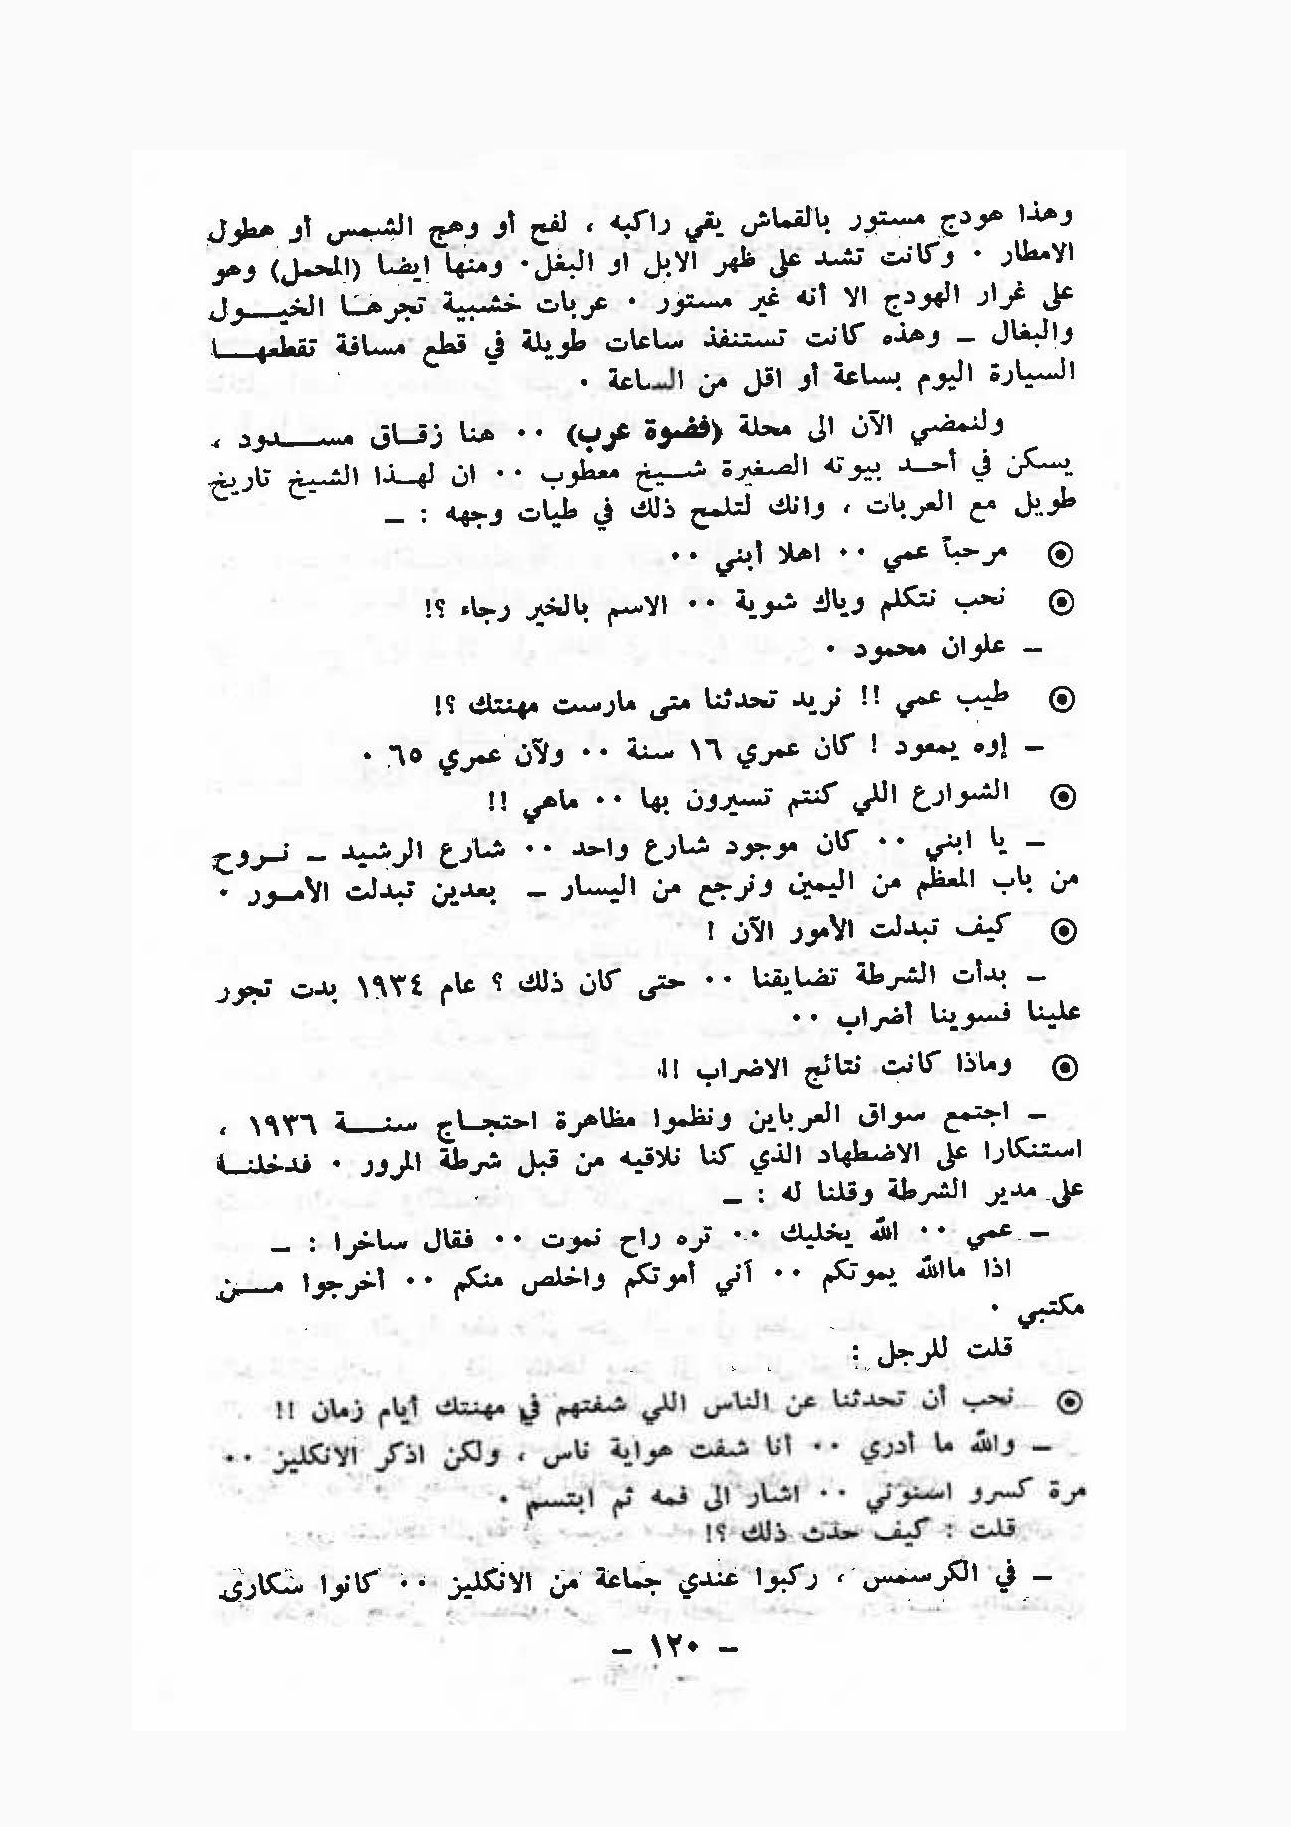 وهذا هودج مستور بالقماش يقي راكبه ، لفح أو وهج الشمس أو هطول
الامطار ٠ وكانت تشد على ظهر الابل او البغل٠ ومنها ايضا (المحمل) وهو
على غرار الهودج الا أنه غير مستور ٠ عربات خشبية تجرهـا الخيـــول
والبغال ــ وهذه كانت تستنفذ ساعات طويلة في قطع مسافة تقطعهـــا
السيارة اليوم بساعة أو اقل من الساعة ٠
ولنمضي الآن الى محلة (فضوة عرب) ٠٠ هنا زقـاق مســـدود ،
يسكن في أحـد بيوته الصغيرة شـيخ معطوب ٠٠ ان لهـذا الشيخ تاريخ
طويل مع العربات ، وانك لتلمح ذلك في طيات وجهه : ــ
◉ مرحباً عمي ٠٠ اهلا أبني ٠٠
◉ نحب نتكلم وياك شوية ٠٠ الاسم بالخير رجاء ؟!
ــ علوان محمود ٠
◉ طيب عمي !! نريد تحدثنا متى مارست مهنتك ؟!
ــ إوه يمعود ! كان عمري ١٦ سنة ٠٠ ولآن عمري ٦٥ ٠
◉ الشوارع اللي كنتم تسيرون بها ٠٠ ماهي !!
ــ يا ابني ٠٠ كان موجود شارع واحد ٠٠ شارع الرشيد ــ نـروح
من باب المعظم من اليمين ونرجع من اليسار ــ بعدين تبدلت الأمـور ٠
◉ كيف تبدلت الأمور الآن !
ــ بدأت الشرطة تضايقنا ٠٠ حتى كان ذلك ؟ عام ١٩٣٤ بدت تجور
علينا فسوينا أضراب ٠٠
◉ وماذا كانت نتائج الاضراب !!
ــ اجتمع سواق العرباين ونظموا مظاهرة احتجـاج سنـــة ١٩٣٦ ،
استنكارا على الاضطهاد الذي كنا نلاقيه من قبل شرطة المرور ٠ فدخلنـا
على مدير الشرطة وقلنا له : ــ
ــ عمي ٠٠ الله يخليك ٠٠ تره راح نموت ٠٠ فقال ساخرا : ــ
اذا ماالله يموتكم ٠٠ آني أموتكم واخلص منكم ٠٠ أخرجوا مــن
مكتبي ٠
قلت للرجل :
◉ نحب أن تحدثنا عن الناس اللي شفتهم في مهنتك أيام زمان !!
ــ والله ما أدري ٠٠ أنا شفت هواية ناس ، ولكن اذكر الانكليز ٠٠
مرة كسرو اسنوني ٠٠ اشار الى فمه ثم ابتسم ٠
قلت : كيف حدث ذلك ؟!
ــ في الكرسمس ، ركبوا عندي جماعة من الانكليز ٠٠ كانوا سكارى
ــ ١٢٠ ــ